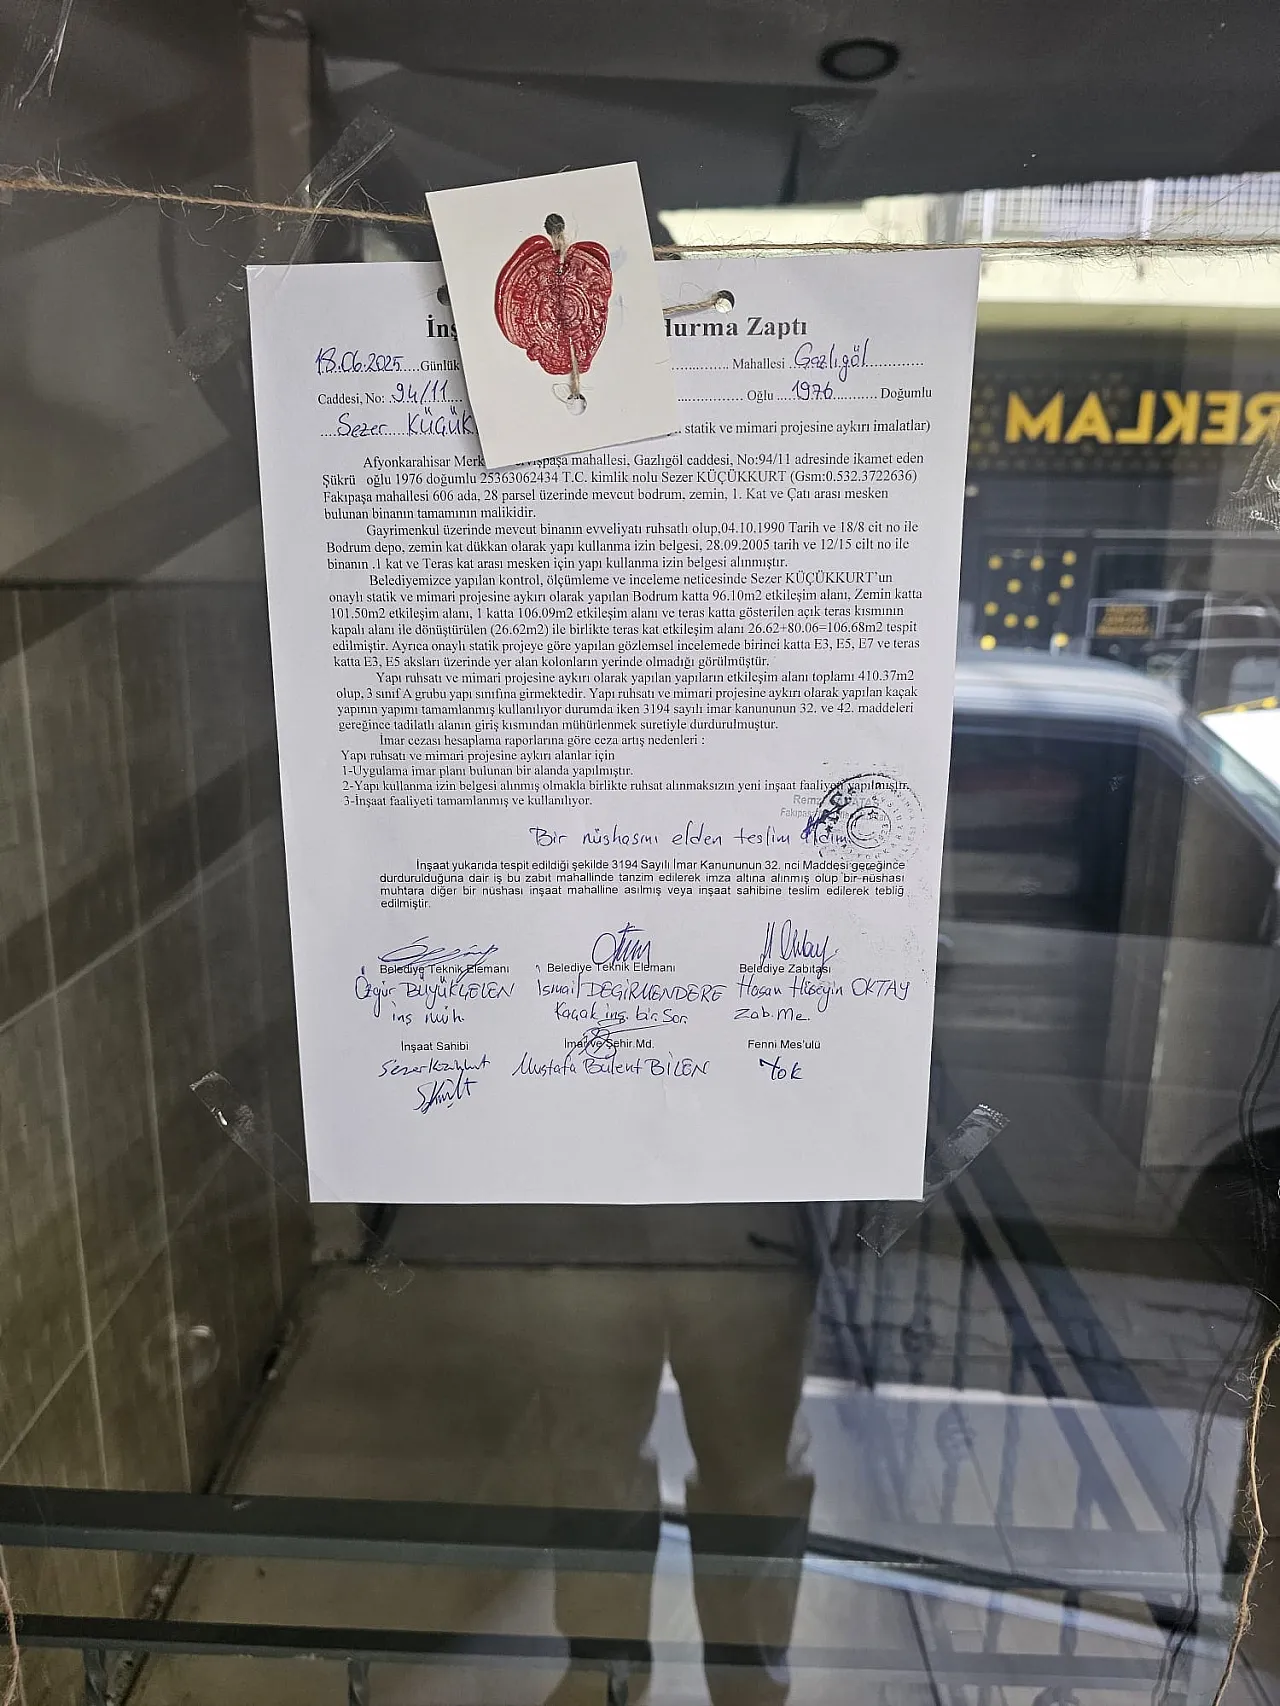 İnş durma Zaptı
18.06.2025....Günlük ........... Mahallesi Gazlıgöl............
Caddesi, No: .94/11.... ............... Oğlu ....1976........... Doğumlu
....Sezer.... KÜÇÜK .. statik ve mimari projesine aykırı imalatlar)
REKLAM
Afyonkarahisar Merk mahallesi, Gazlıgöl caddesi, No:94/11 adresinde ikamet eden
Şükrü oğlu 1976 doğumlu 25363062434 T.C. kimlik nolu Sezer KÜÇÜKKURT (Gsm:0.532.3722636)
Fakıpaşa mahallesi 606 ada, 28 parsel üzerinde mevcut bodrum, zemin, 1. Kat ve Çatı arası mesken
bulunan binanın tamamının malikidir.
Gayrimenkul üzerinde mevcut binanın evveliyatı ruhsatlı olup,04.10.1990 Tarih ve 18/8 cit no ile
Bodrum depo, zemin kat dükkan olarak yapı kullanma izin belgesi, 28.09.2005 tarih ve 12/15 cilt no ile
binanın .1 kat ve Teras kat arası mesken için yapı kullanma izin belgesi alınmıştır.
Belediyemizce yapılan kontrol, ölçümleme ve inceleme neticesinde Sezer KÜÇÜKKURT'un
onaylı statik ve mimari projesine aykırı olarak yapılan Bodrum katta 96.10m2 etkileşim alanı, Zemin katta
101.50m2 etkileşim alanı, 1 katta 106.09m2 etkileşim alanı ve teras katta gösterilen açık teras kısmının
kapalı alanı ile dönüştürülen (26.62m2) ile birlikte teras kat etkileşim alanı 26.62+80.06=106.68m2 tespit
edilmiştir. Ayrıca onaylı statik projeye göre yapılan gözlemsel incelemede birinci katta E3, E5, E7 ve teras
katta E3, E5 aksları üzerinde yer alan kolonların yerinde olmadığı görülmüştür.
Yapı ruhsatı ve mimari projesine aykırı olarak yapılan yapıların etkileşim alanı toplamı 410.37m2
olup, 3 sınıf A grubu yapı sınıfına girmektedir. Yapı ruhsatı ve mimari projesine aykırı olarak yapılan kaçak
yapının yapımı tamamlanmış kullanılıyor durumda iken 3194 sayılı imar kanununun 32. ve 42. maddeleri
gereğince tadilatlı alanın giriş kısmından mühürlenmek suretiyle durdurulmuştur.
İmar cezası hesaplama raporlarına göre ceza artış nedenleri :
Yapı ruhsatı ve mimari projesine aykırı alanlar için
1-Uygulama imar planı bulunan bir alanda yapılmıştır.
2-Yapı kullanma izin belgesi alınmış olmakla birlikte ruhsat alınmaksızın yeni inşaat faaliyeti yapılmıştır.
3-İnşaat faaliyeti tamamlanmış ve kullanılıyor.
Bir nüshasını elden teslim aldım
İnşaat yukarıda tespit edildiği şekilde 3194 Sayılı İmar Kanununun 32. nci Maddesi gereğince
durdurulduğuna dair iş bu zabıt mahallinde tanzim edilerek imza altına alınmış olup bir nüshası
muhtara diğer bir nüshası inşaat mahalline asılmış veya inşaat sahibine teslim edilerek tebliğ
edilmiştir.
Belediye Teknik Elemanı Belediye Teknik Elemanı Belediye Zabıtası
Özgür BÜYÜKGELEN İsmail DEĞİRMENDERE Hasan Hüseyin OKTAY
inş müh. Kaçak inş. bir. Sor. Zab. Me.
İnşaat Sahibi İmar ve Şehir.Md. Fenni Mes'ulü
Sezer Küçükkurt Mustafa Bülent BİLEN Yok